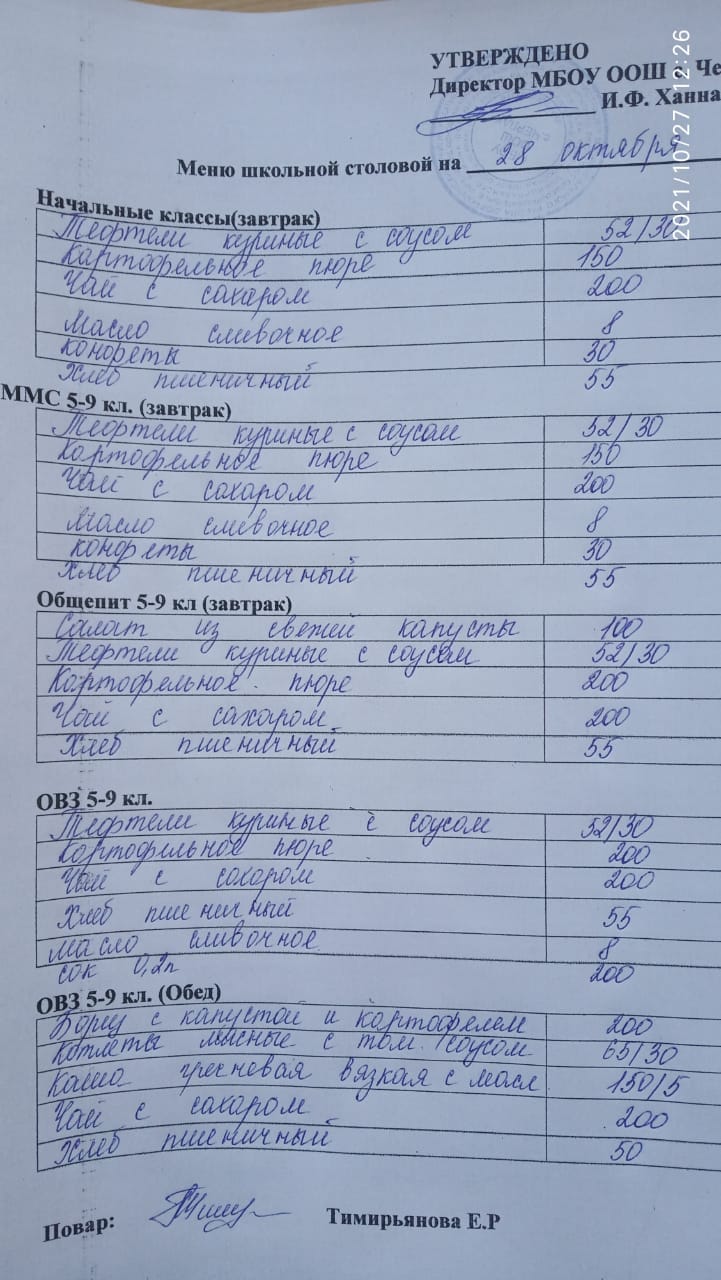 УТВЕРЖДЕНО
Директор МБОУ ООШ с. Че
И.Ф. Ханна
2021/10/27 12:26
Меню школьной столовой на 28 октября
Начальные классы(завтрак)
Тефтели куриные с соусом 52/30
Картофельное пюре 150
Чай с сахаром 200
Масло сливочное 8
конфеты 30
Хлеб пшеничный 55
ММС 5-9 кл. (завтрак)
Тефтели куриные с соусом 52/30
Картофельное пюре 150
Чай с сахаром 200
Масло сливочное 8
конфеты 30
Хлеб пшеничный 55
Общепит 5-9 кл (завтрак)
Салат из свежей капусты 100
Тефтели куриные с соусом 52/30
Картофельное пюре 200
Чай с сахаром 200
Хлеб пшеничный 55
ОВЗ 5-9 кл.
Тефтели куриные с соусом 52/30
Картофельное пюре 200
Чай с сахаром 200
Хлеб пшеничный 55
Масло сливочное 8
сок 0,2л 200
ОВЗ 5-9 кл. (Обед)
Борщ с капустой и картофелем 200
Котлеты мясные с том. соусом 65/30
Каша гречневая вязкая с масл 150/5
Чай с сахаром 200
Хлеб пшеничный 50
Повар: Тимирьянова Е.Р